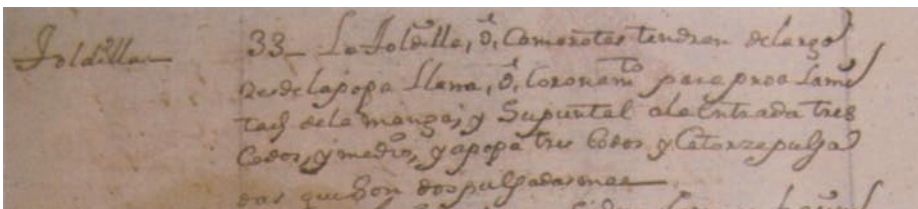 Toldilla
33 La Toldilla, ó, Camarotes tendran de largo
desde la popa Llana, ó, Coronam.to para proa Lami
tad de la manga, y Su puntal a la entrada tres
Codos, y medio, y a popa tres Codos y Catorze pulga
das que son dos pulgadas mas